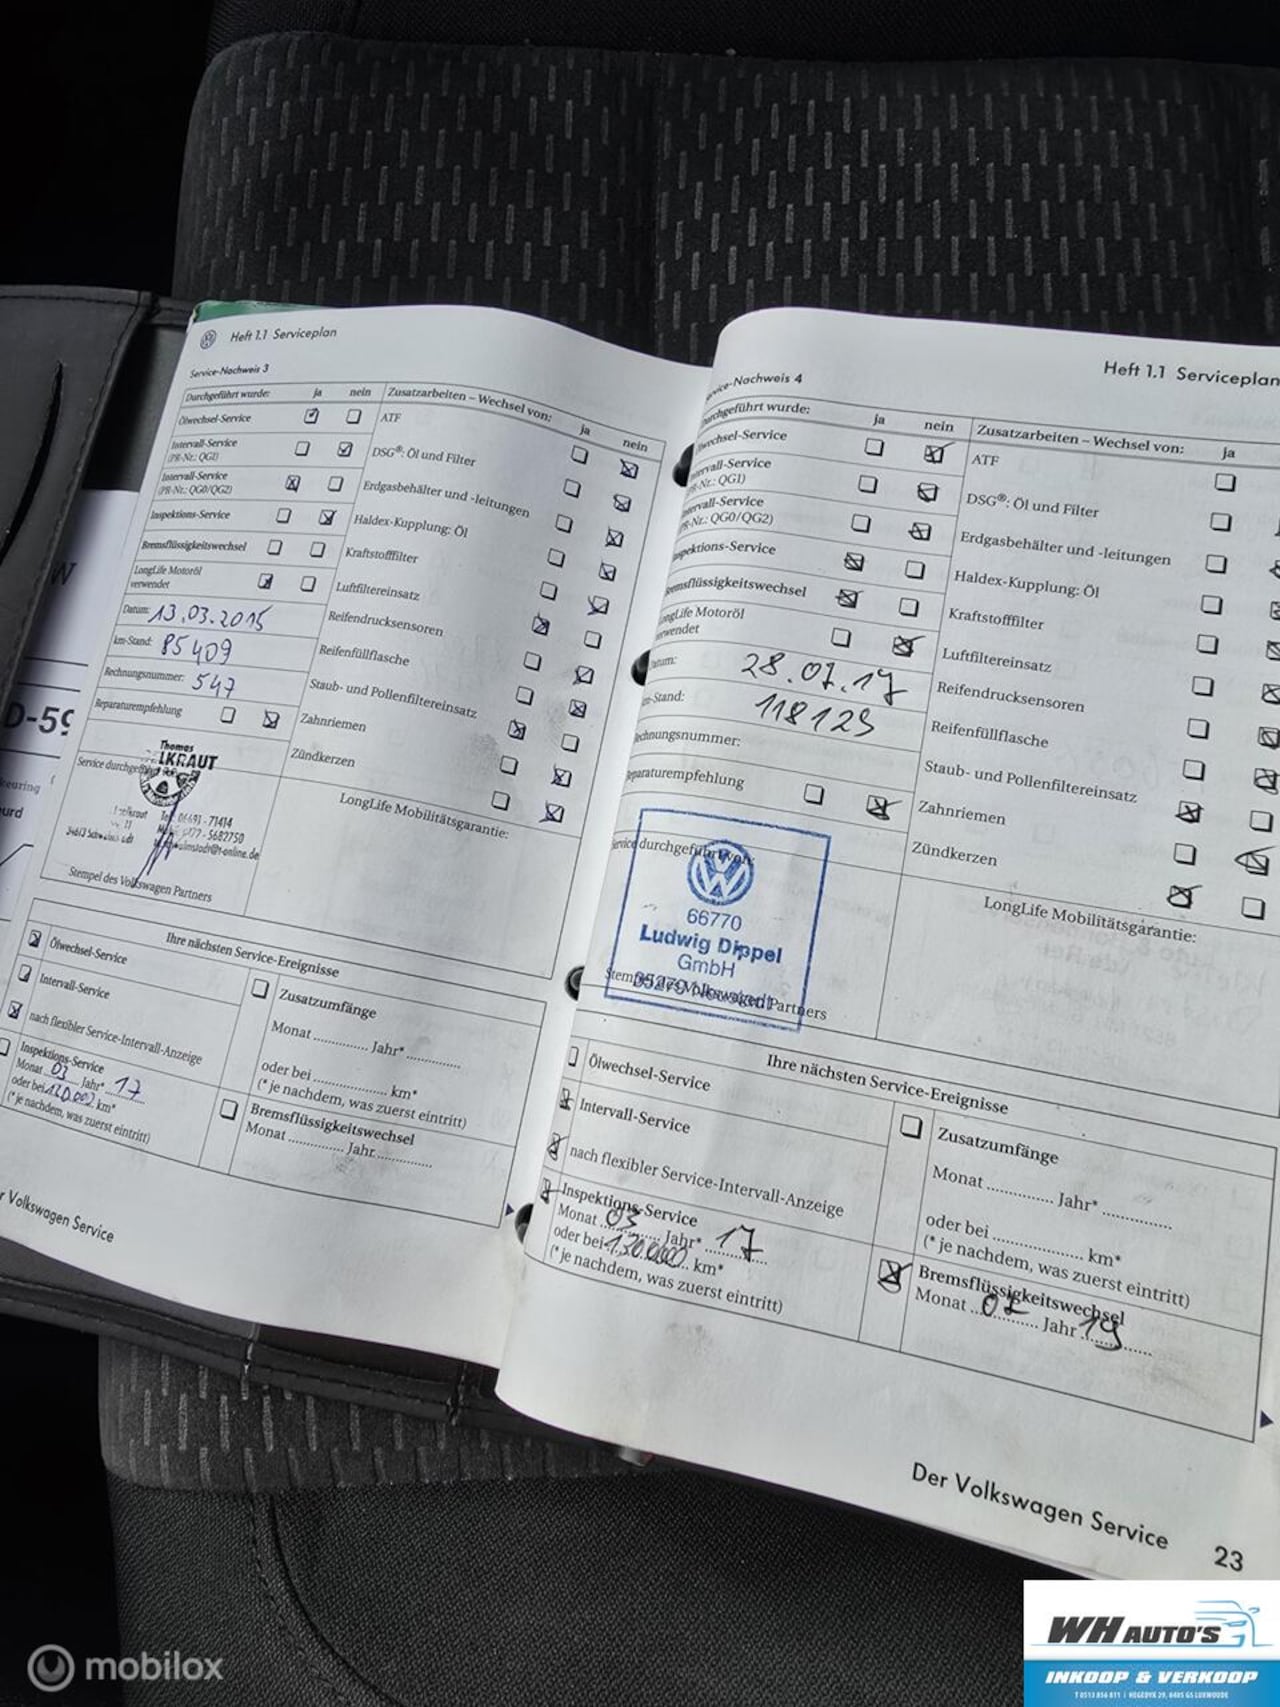 W
D-59
keuring
Heft 1.1 Serviceplan
Service-Nachweis 3
Durchgeführt wurde: ja nein
Ölwechsel-Service
Intervall-Service
(PR-Nr.: QG1)
Intervall-Service
(PR-Nr.: QG0/QG2)
Inspektions-Service
Bremsflüssigkeitswechsel
LongLife Motoröl
verwendet
Datum: 13.03.2015
km-Stand: 85409
Rechnungsnummer: 547
Reparaturempfehlung
Zusatzarbeiten – Wechsel von: ja nein
ATF
DSG®: Öl und Filter
Erdgasbehälter und -leitungen
Haldex-Kupplung: Öl
Kraftstofffilter
Luftfiltereinsatz
Reifendrucksensoren
Reifenfüllflasche
Staub- und Pollenfiltereinsatz
Zahnriemen
Zündkerzen
Service durchgeführt
Thomas
LKRAUT
06691 - 71414
5682750
LongLife Mobilitätsgarantie:
Stempel des Volkswagen Partners
Ihre nächsten Service-Ereignisse
Ölwechsel-Service
Intervall-Service
nach flexibler Service-Intervall-Anzeige
Inspektions-Service
Monat 03 Jahr* 17
oder bei 120.000 km*
(*je nachdem, was zuerst eintritt)
Zusatzumfänge
Monat .............. Jahr* ..............
oder bei .................. km*
(*je nachdem, was zuerst eintritt)
Bremsflüssigkeitswechsel
Monat .............. Jahr ..............
r Volkswagen Service
Heft 1.1 Serviceplan
vice-Nachweis 4
urchgeführt wurde: ja nein
lwechsel-Service
ntervall-Service
PR-Nr.: QG1)
ntervall-Service
PR-Nr.: QG0/QG2)
nspektions-Service
remsflüssigkeitswechsel
ongLife Motoröl
erwendet
atum: 28.07.17
m-Stand: 118129
echnungsnummer:
eparaturempfehlung
Zusatzarbeiten – Wechsel von: ja
ATF
DSG®: Öl und Filter
Erdgasbehälter und -leitungen
Haldex-Kupplung: Öl
Kraftstofffilter
Luftfiltereinsatz
Reifendrucksensoren
Reifenfüllflasche
Staub- und Pollenfiltereinsatz
Zahnriemen
Zündkerzen
Service durchgeführt von:
66770
Ludwig Dippel
GmbH
35279 Neustadt
Stempel des Volkswagen Partners
LongLife Mobilitätsgarantie:
Ihre nächsten Service-Ereignisse
Ölwechsel-Service
Intervall-Service
nach flexibler Service-Intervall-Anzeige
Inspektions-Service
Monat 03 Jahr* 17
oder bei 130.000 km*
(*je nachdem, was zuerst eintritt)
Zusatzumfänge
Monat .............. Jahr* ..............
oder bei .................. km*
(*je nachdem, was zuerst eintritt)
Bremsflüssigkeitswechsel
Monat 07 Jahr 19
Der Volkswagen Service
23
mobilox
WH AUTO'S
INKOOP & VERKOOP
T 0513 856 811 | HEGEDYK 29, 8405 GS LUXWOUDE